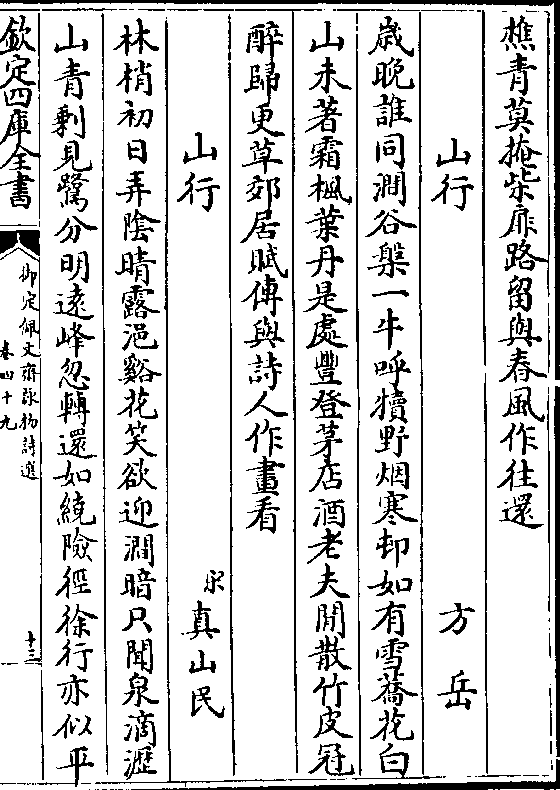 樵青莫掩柴扉路留與春風作往還
山行 方岳
歳晚誰同澗谷槃一牛呼犢野烟寒邨如有雪蕎花白
山未著霜楓葉丹是處豐登茅店酒老夫閒散竹皮冠
醉歸更草郊居賦傳與詩人作畫看
山行 宋真山民
林梢初日弄陰晴露浥谿花笑欲迎澗暗只聞泉滴瀝
山青剰見鷺分明遠峰忽轉還如繞險徑徐行亦似平
欽定四庫全書
御定佩文齋詠物詩選
卷四十九
十三